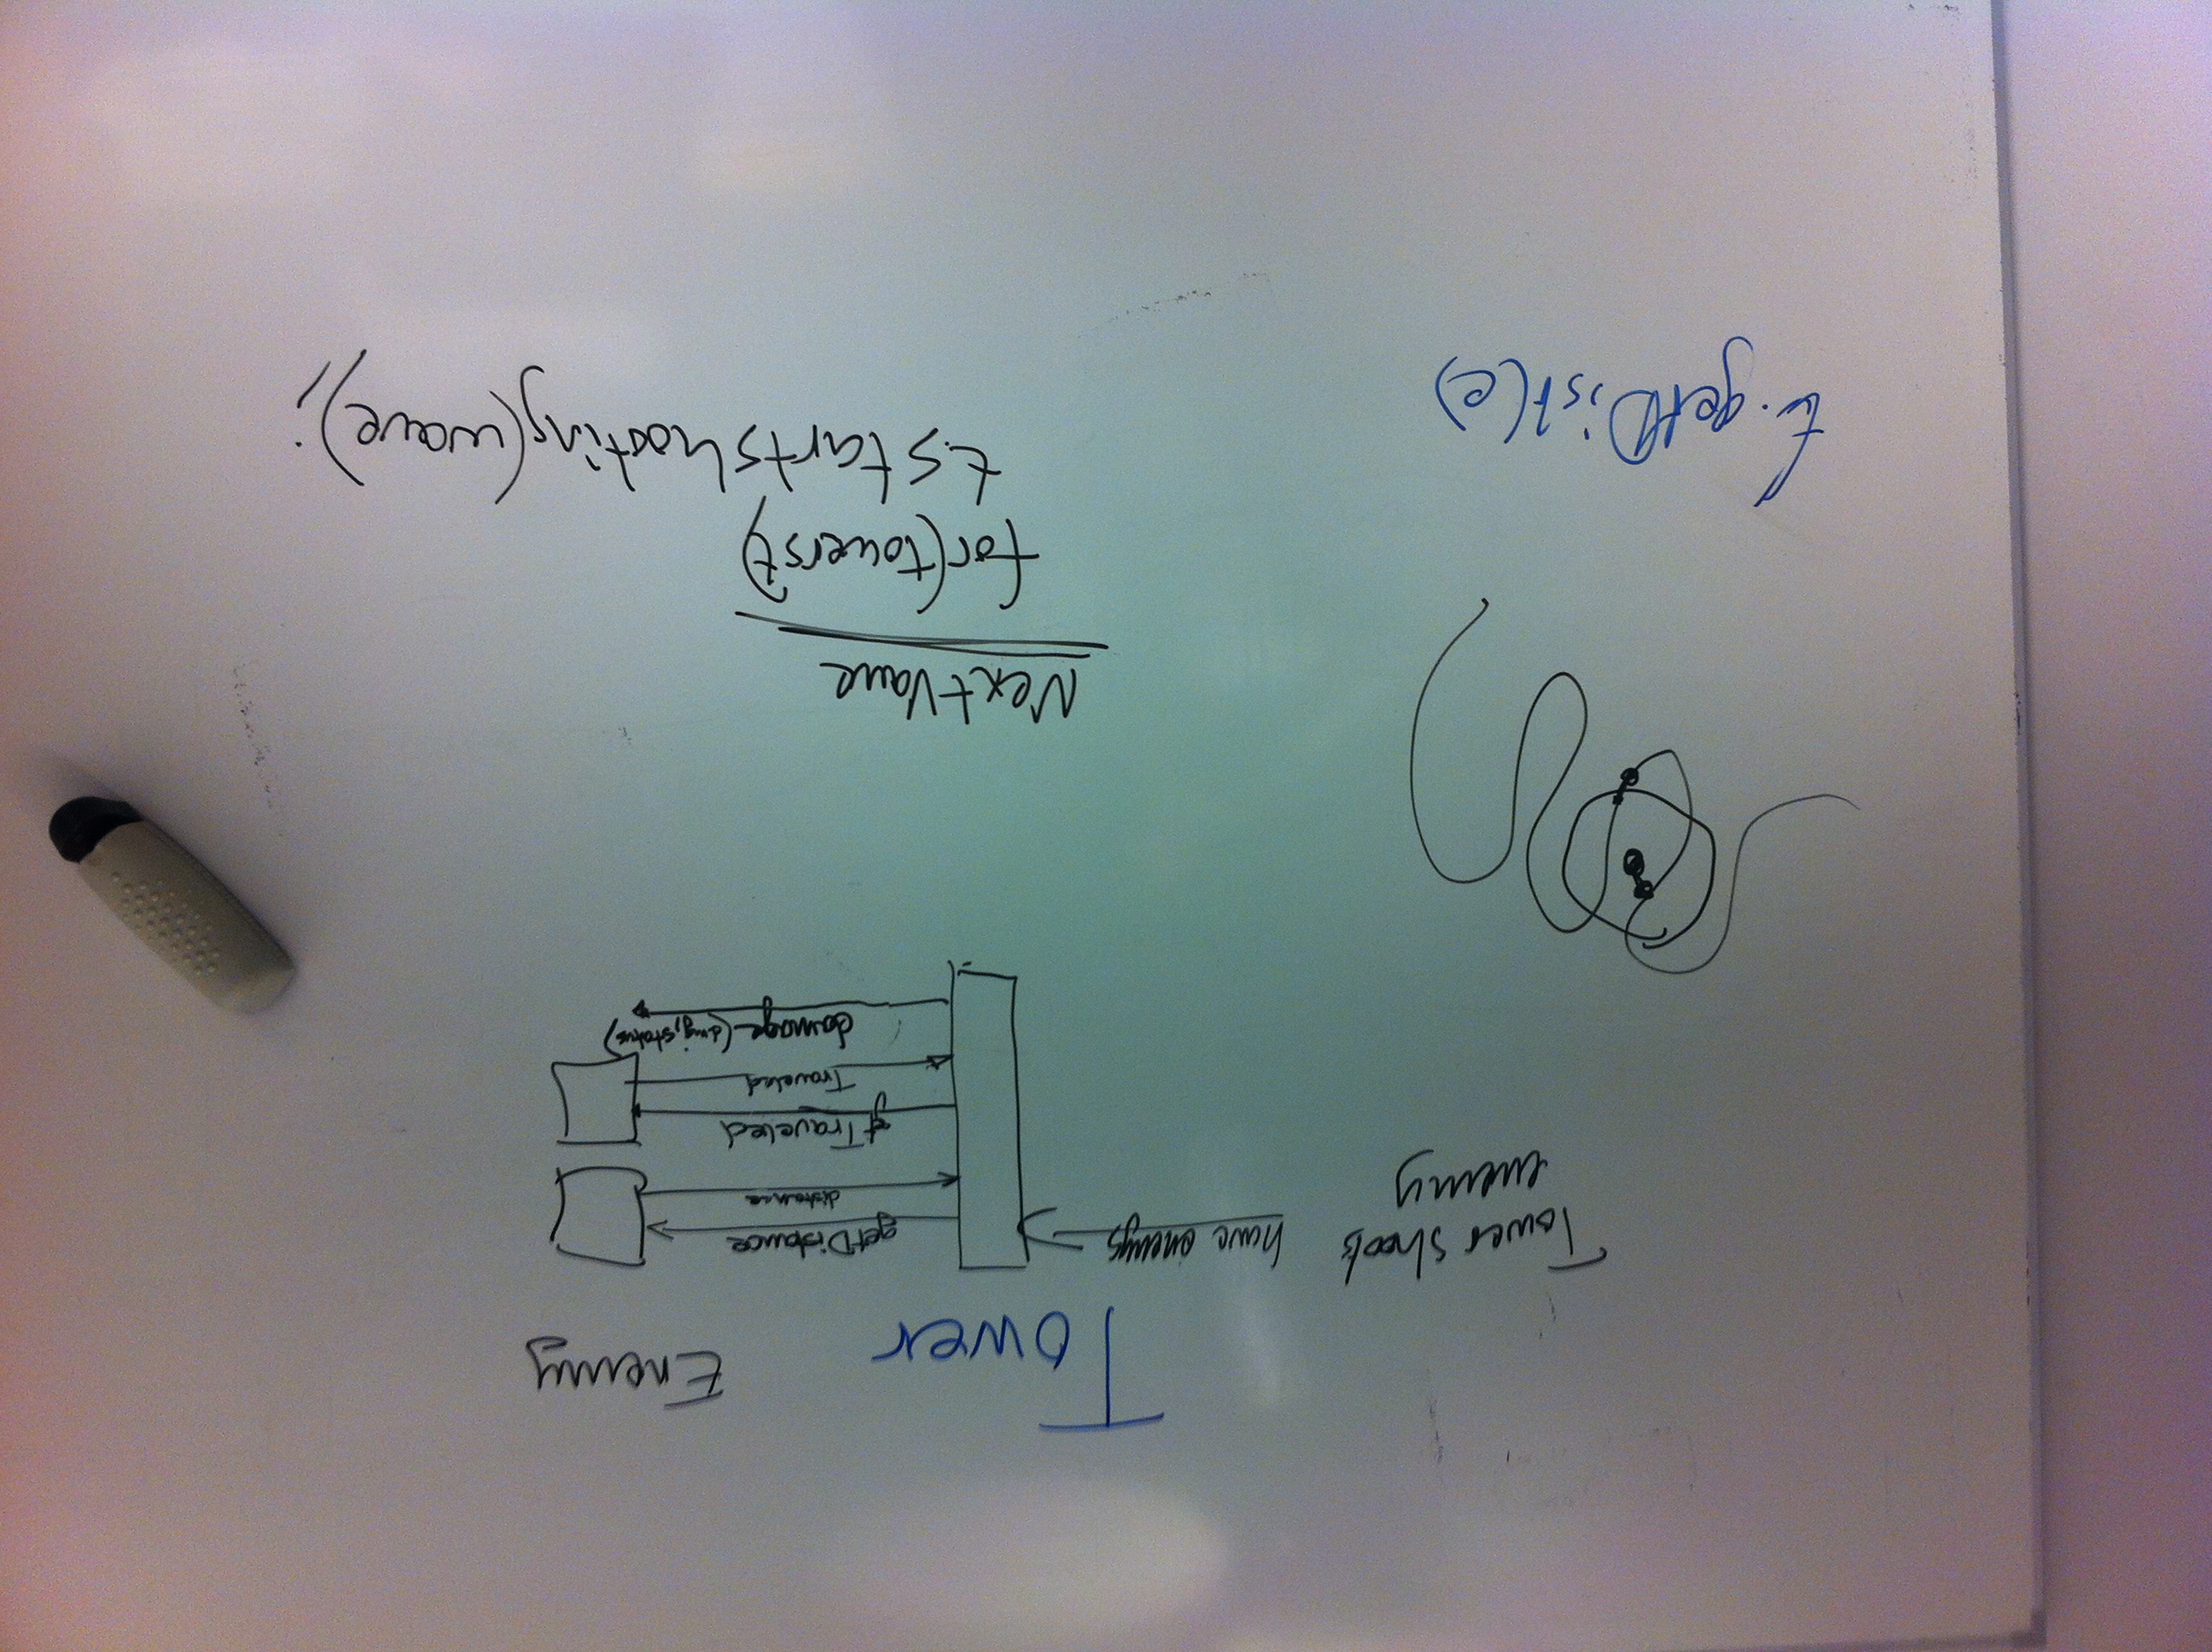 Tower
Enemy
Tower shoots
enemy
have enemys
getDistance
distance
getTraveled
Traveled
damage (dmg, status)
NextVave
for(towers t)
t.startshooting(wave);
t.getDist(e)